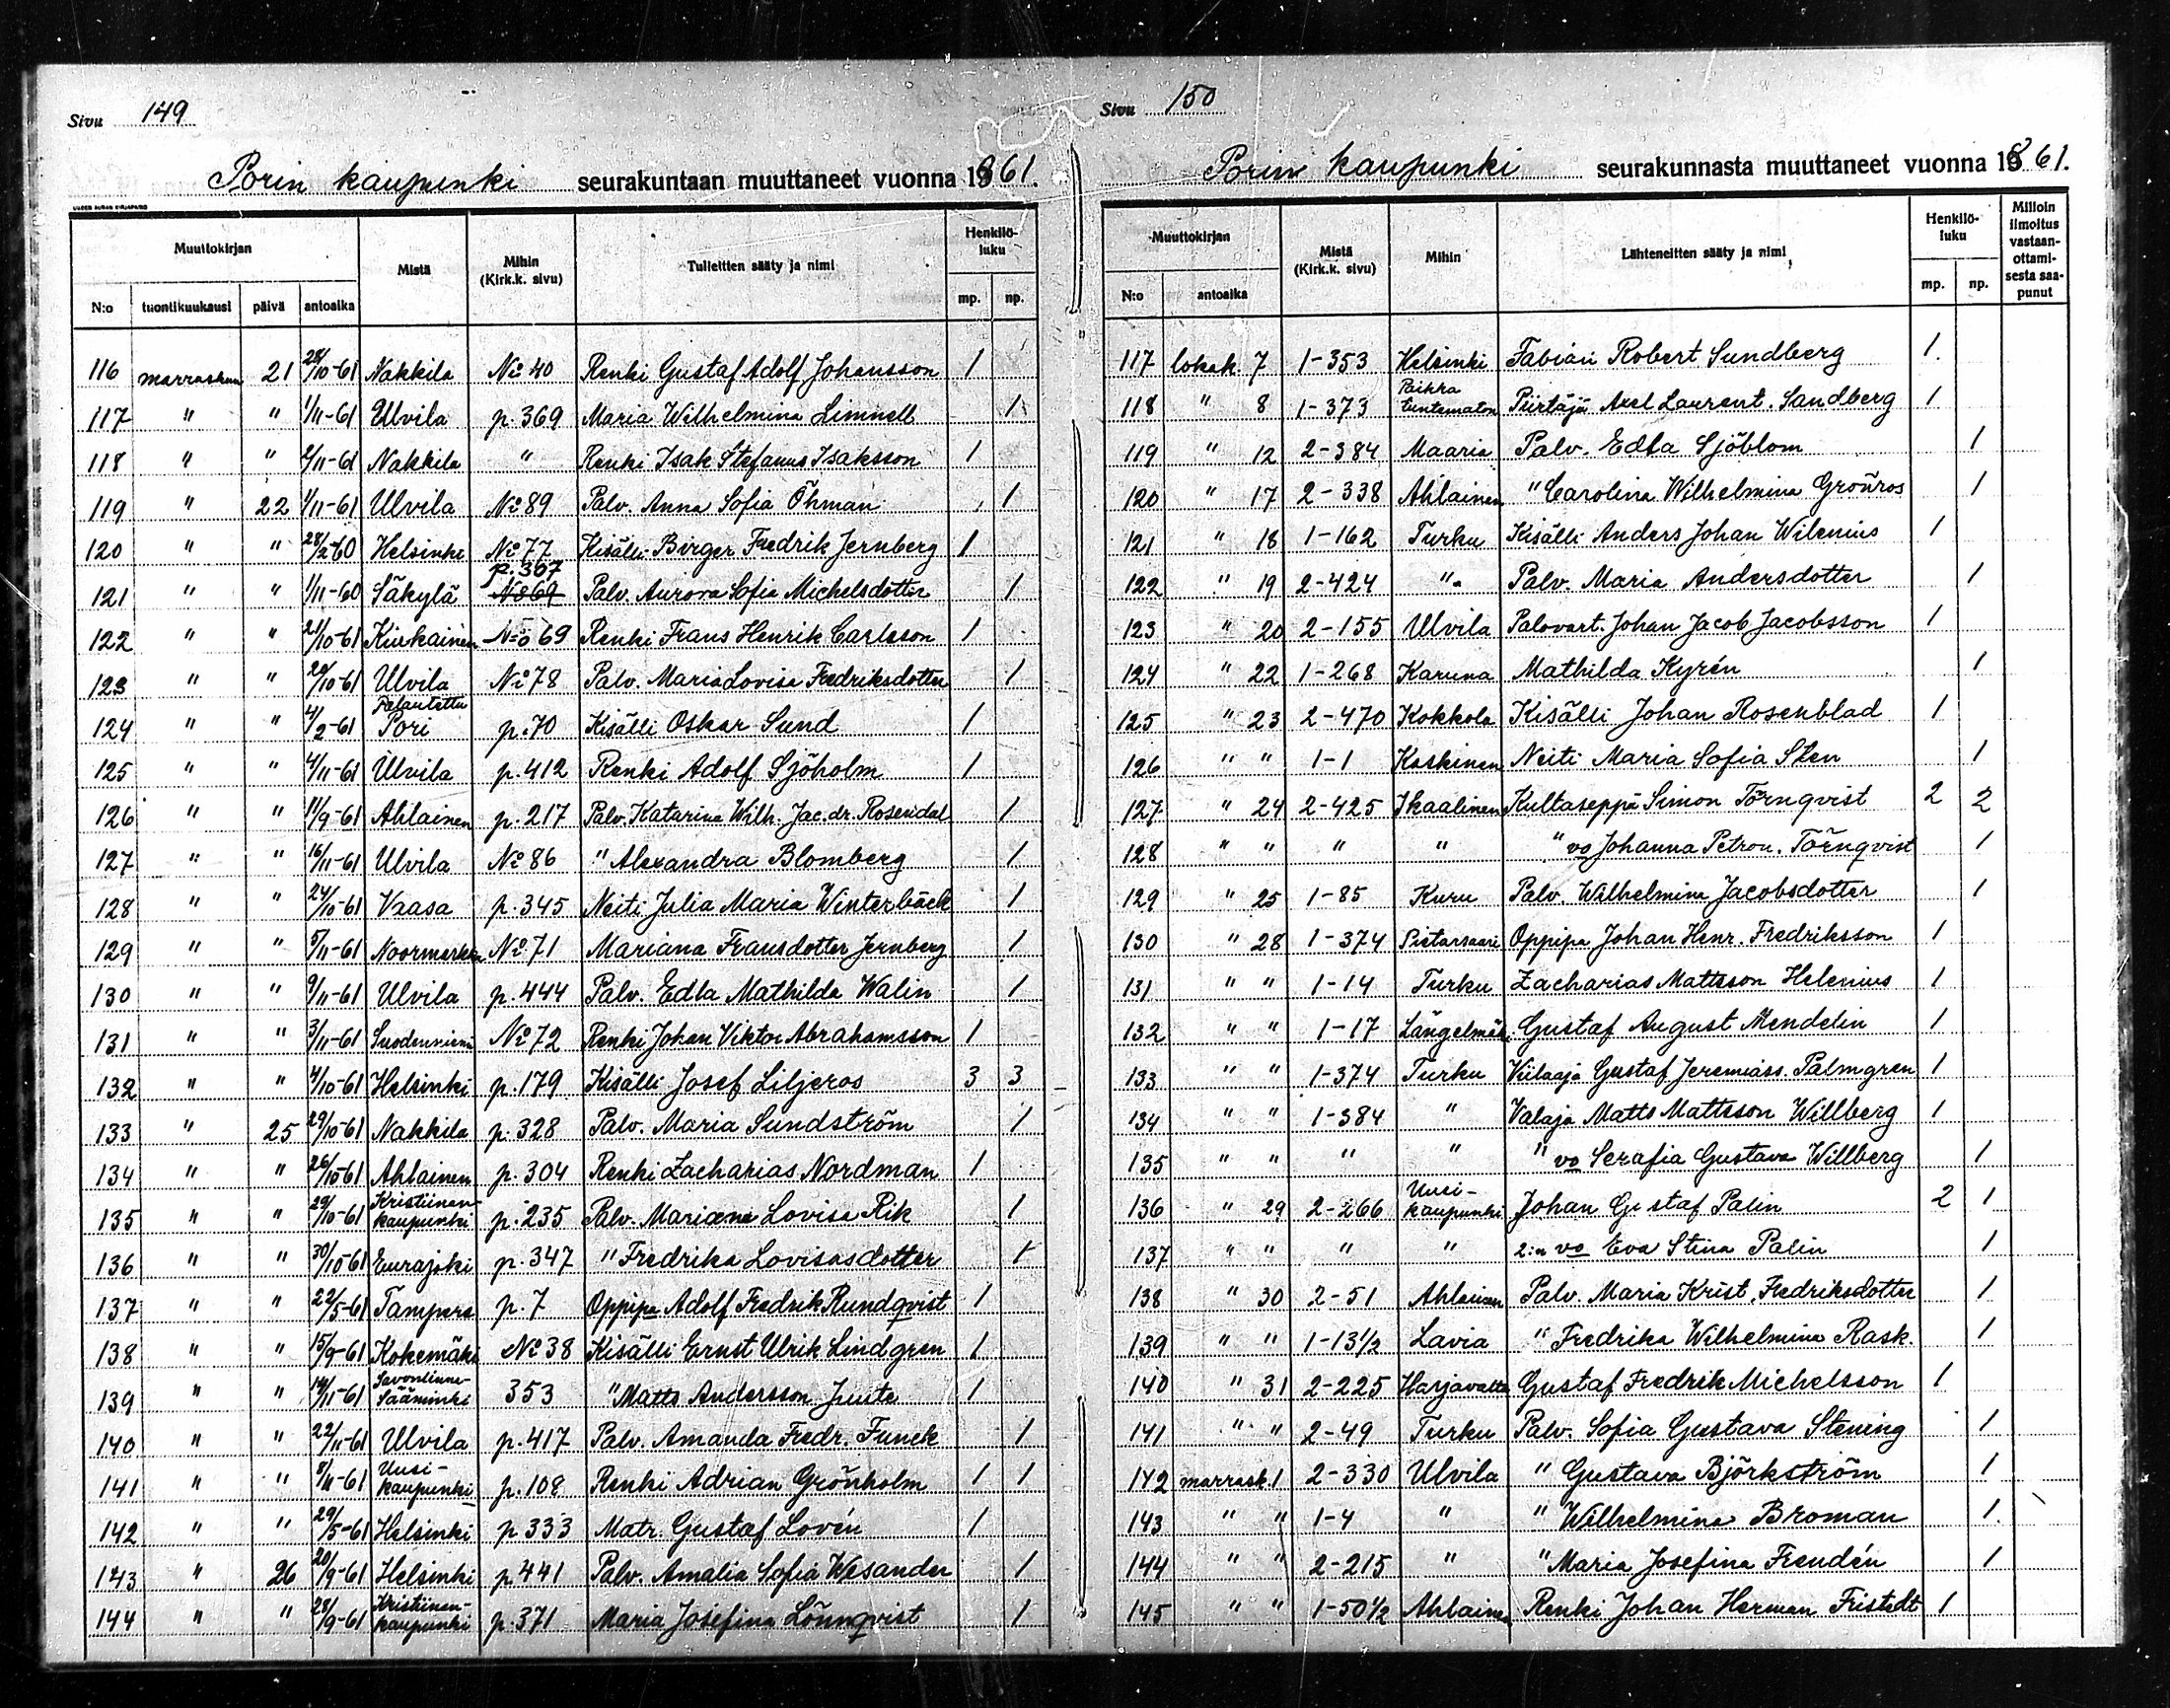 Sivu 149
Porin kaupunki seurakuntaan muuttaneet vuonna 1861.
Muuttokirjan Mistä Mihin (Kirk.k. sivu) Tulleitten sääty ja nimi Henkilö-luku
N:o tuontikuukausi päivä antoaika mp. np.
116 marraskuu 21 28/10-61 Nakkila No 40 Renki Gustaf Adolf Johansson 1
117 " " 1/11-61 Ulvila p. 369 Maria Wilhelmina Limnell 1
118 " " 2/11-61 Nakkila " Renki Isak Stefanus Isaksson 1
119 " 22 1/11-61 Ulvila No 89 Palv. Anna Sofia Öhman 1
120 " " 28/2-60 Helsinki No 77 Kisälli Birger Fredrik Jernberg 1
121 " " 1/11-60 Säkylä p. 367 N 369 Palv. Aurora Sofia Michelsdotter 1
122 " " 21/10-61 Kiukainen No 69 Renki Frans Henrik Carlsson 1
123 " " 20/10-61 Ulvila No 78 Palv. Maria Lovisa Fredriksdotter 1
124 " " 4/2-61 Palautettu Pori p. 70 Kisälli Oskar Sund 1
125 " " 4/11-61 Ulvila p. 412 Renki Adolf Sjöholm 1
126 " " 11/9-61 Ahlainen p. 217 Palv. Katarina Wilh. Jac.dr. Rosendal 1
127 " " 16/11-61 Ulvila No 86 " Alexandra Blomberg 1
128 " " 24/10-61 Vaasa p. 345 Neiti Julia Maria Winterbäck 1
129 " " 5/11-61 Noormarkku No 71 Mariana Fransdotter Jernberg 1
130 " " 9/11-61 Ulvila p. 444 Palv. Edla Mathilda Walin 1
131 " " 3/11-61 Suodenniemi No 72 Renki Johan Viktor Abrahamsson 1
132 " " 4/10-61 Helsinki p. 179 Kisälli Josef Liljeros 3 3
133 " 25 29/10-61 Nakkila p. 328 Palv. Maria Sundström 1
134 " " 26/10-61 Ahlainen p. 304 Renki Zacharias Nordman 1
135 " " 29/10-61 Kristiinan-kaupunki p. 235 Palv. Mariana Lovisa Rik 1
136 " " 30/10-61 Eurajoki p. 347 " Fredrika Lovisasdotter 1
137 " " 22/5-61 Tampere p. 7 Oppipa Adolf Fredrik Rundqvist 1
138 " " 15/9-61 Kokemäki No 38 Kisälli Ernst Ulrik Lindgren 1
139 " " 14/11-61 Savonlinna-Sääminki 353 " Matts Andersson Juute 1
140 " " 22/11-61 Ulvila p. 417 Palv. Amanda Fredr. Funck 1
141 " " 8/11-61 Uusi-kaupunki p. 108 Renki Adrian Grönholm 1 1
142 " " 29/5-61 Helsinki p 333 Matr. Gustaf Lovén 1
143 " 26 20/9-61 Helsinki p. 441 Palv. Amalia Sofia Wesander 1
144 " " 28/9-61 Kristiinan-kaupunki p. 371 Maria Josefina Lönnqvist 1
Sivu 150
Porin kaupunki seurakunnasta muuttaneet vuonna 1861.
Muuttokirjan Mistä (Kirk.k. sivu) Mihin Lähteneitten sääty ja nimi Henkilö-luku Milloin ilmoitus vastaan-ottami-sesta saa-punut
N:o antoaika mp. np.
117 lokak. 7 1-353 Helsinki Fabian Robert Sundberg 1.
118 " 8 1-373 Paikka tuntematon Piirtäjä Axel Laurent. Sandberg 1
119 " 12 2-384 Maaria Palv. Edla Sjöblom 1
120 " 17 2-338 Ahlainen " Carolina Wilhelmina Grönros 1
121 " 18 1-162 Turku Kisälli Anders Johan Wilenius 1
122 " 19 2-424 " Palv. Maria Andersdotter 1
123 " 20 2-155 Ulvila Palovart. Johan Jacob Jacobsson 1
124 " 22 1-268 Karuna Mathilda Kyrén 1
125 " 23 2-470 Kokkola Kisälli Johan Rosenblad 1
126 " " 1-1 Koskinen Neiti Maria Sofia Sten 1
127 " 24 2-425 Ikaalinen Kultaseppä Simon Törnqvist 2 2
128 " " " " " vo Johanna Petron. Törnqvist 1
129 " 25 1-85 Kuru Palv. Wilhelmina Jacobsdotter 1
130 " 28 1-374 Pietarsaari Oppipa Johan Henr. Fredriksson 1
131 " " 1-14 Turku Zacharias Mattsson Helenius 1
132 " " 1-17 Längelmäki Gustaf August Mendelin 1
133 " " 1-374 Turku Viilaaja Gustaf Jeremiass. Palmgren 1
134 " " 1-384 " Valaja Matts Mattsson Willberg 1
135 " " " " " vo Serafia Gustava Willberg 1
136 " 29 2-266 Uusi-kaupunki Johan Gustaf Palin 2 1
137 " " " " 2:n vo Eva Stina Palin 1
138 " 30 2-51 Ahlainen Palv. Maria Krist. Fredriksdotter 1
139 " " 1-13 1/2 Lavia " Fredrika Wilhelmina Rask. 1
140 " 31 2-225 Harjavalta Gustaf Fredrik Michelsson 1
141 " " 2-49 Turku Palv. Sofia Gustava Stening 1
142 marrask. 1 2-330 Ulvila " Gustava Björkström 1
143 " " 1-4 " " Wilhelmina Broman 1.
144 " " 2-215 " " Maria Josefina Frendén 1
145 " " 1-50 1/2 Ahlainen Renki Johan Herman Fristedt 1